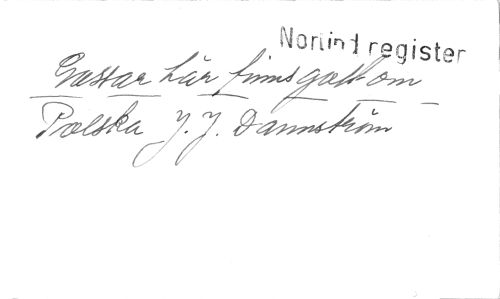 Norlind register
Gastar här finns godt om
Polska J. J. Dannström